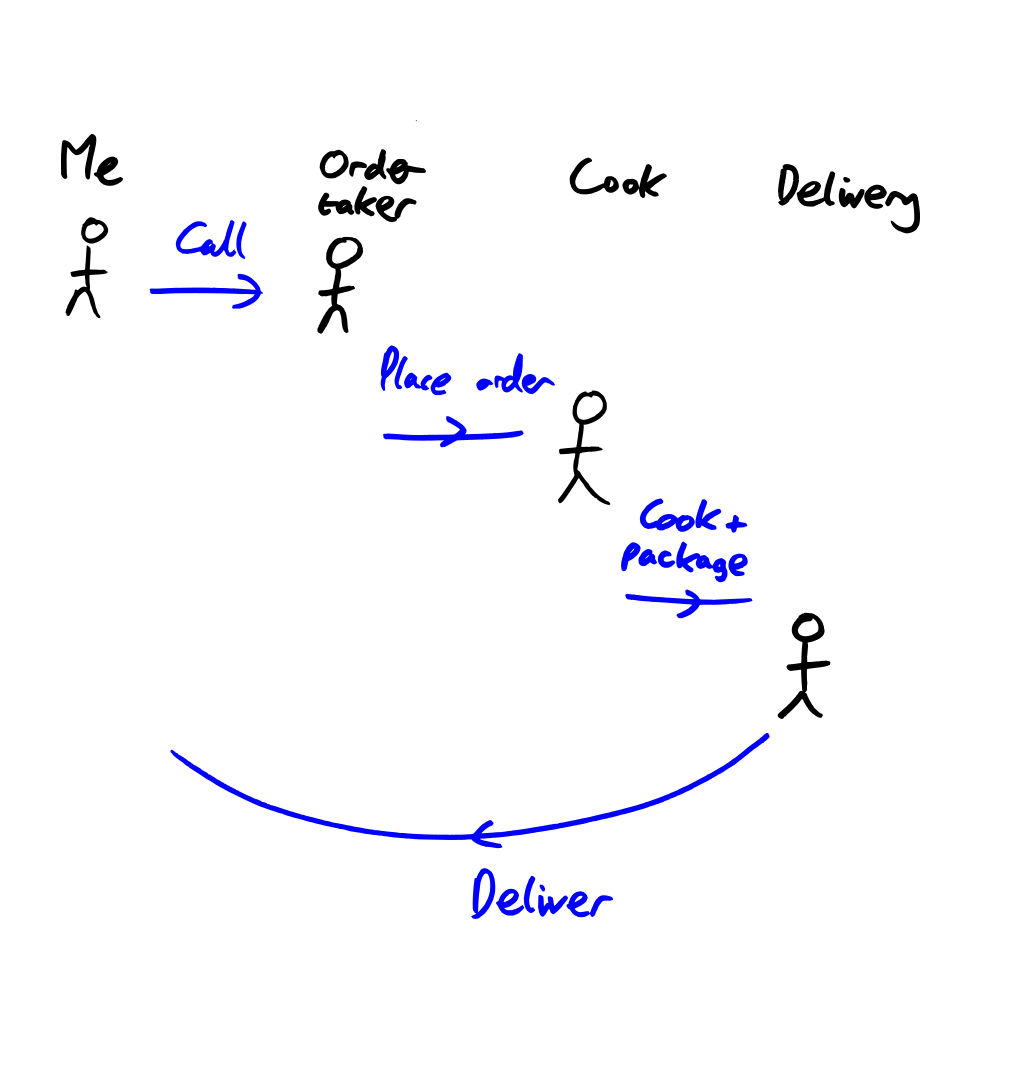 Me
Order
taker
Cook
Delivery
Call
Place order
Cook +
package
Deliver